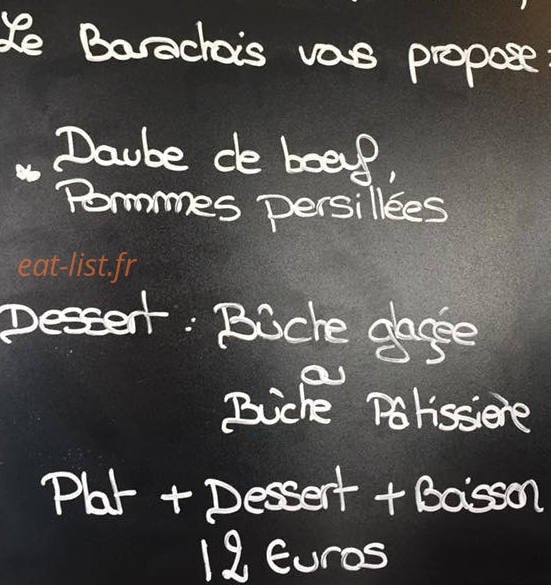 Le Barachois vous propose :
* Daube de boeuf,
Pommes persillées
eat-list.fr
Dessert : Bûche glaçée
ou
Bûche Pâtissière
Plat + Dessert + Boisson
12 Euros